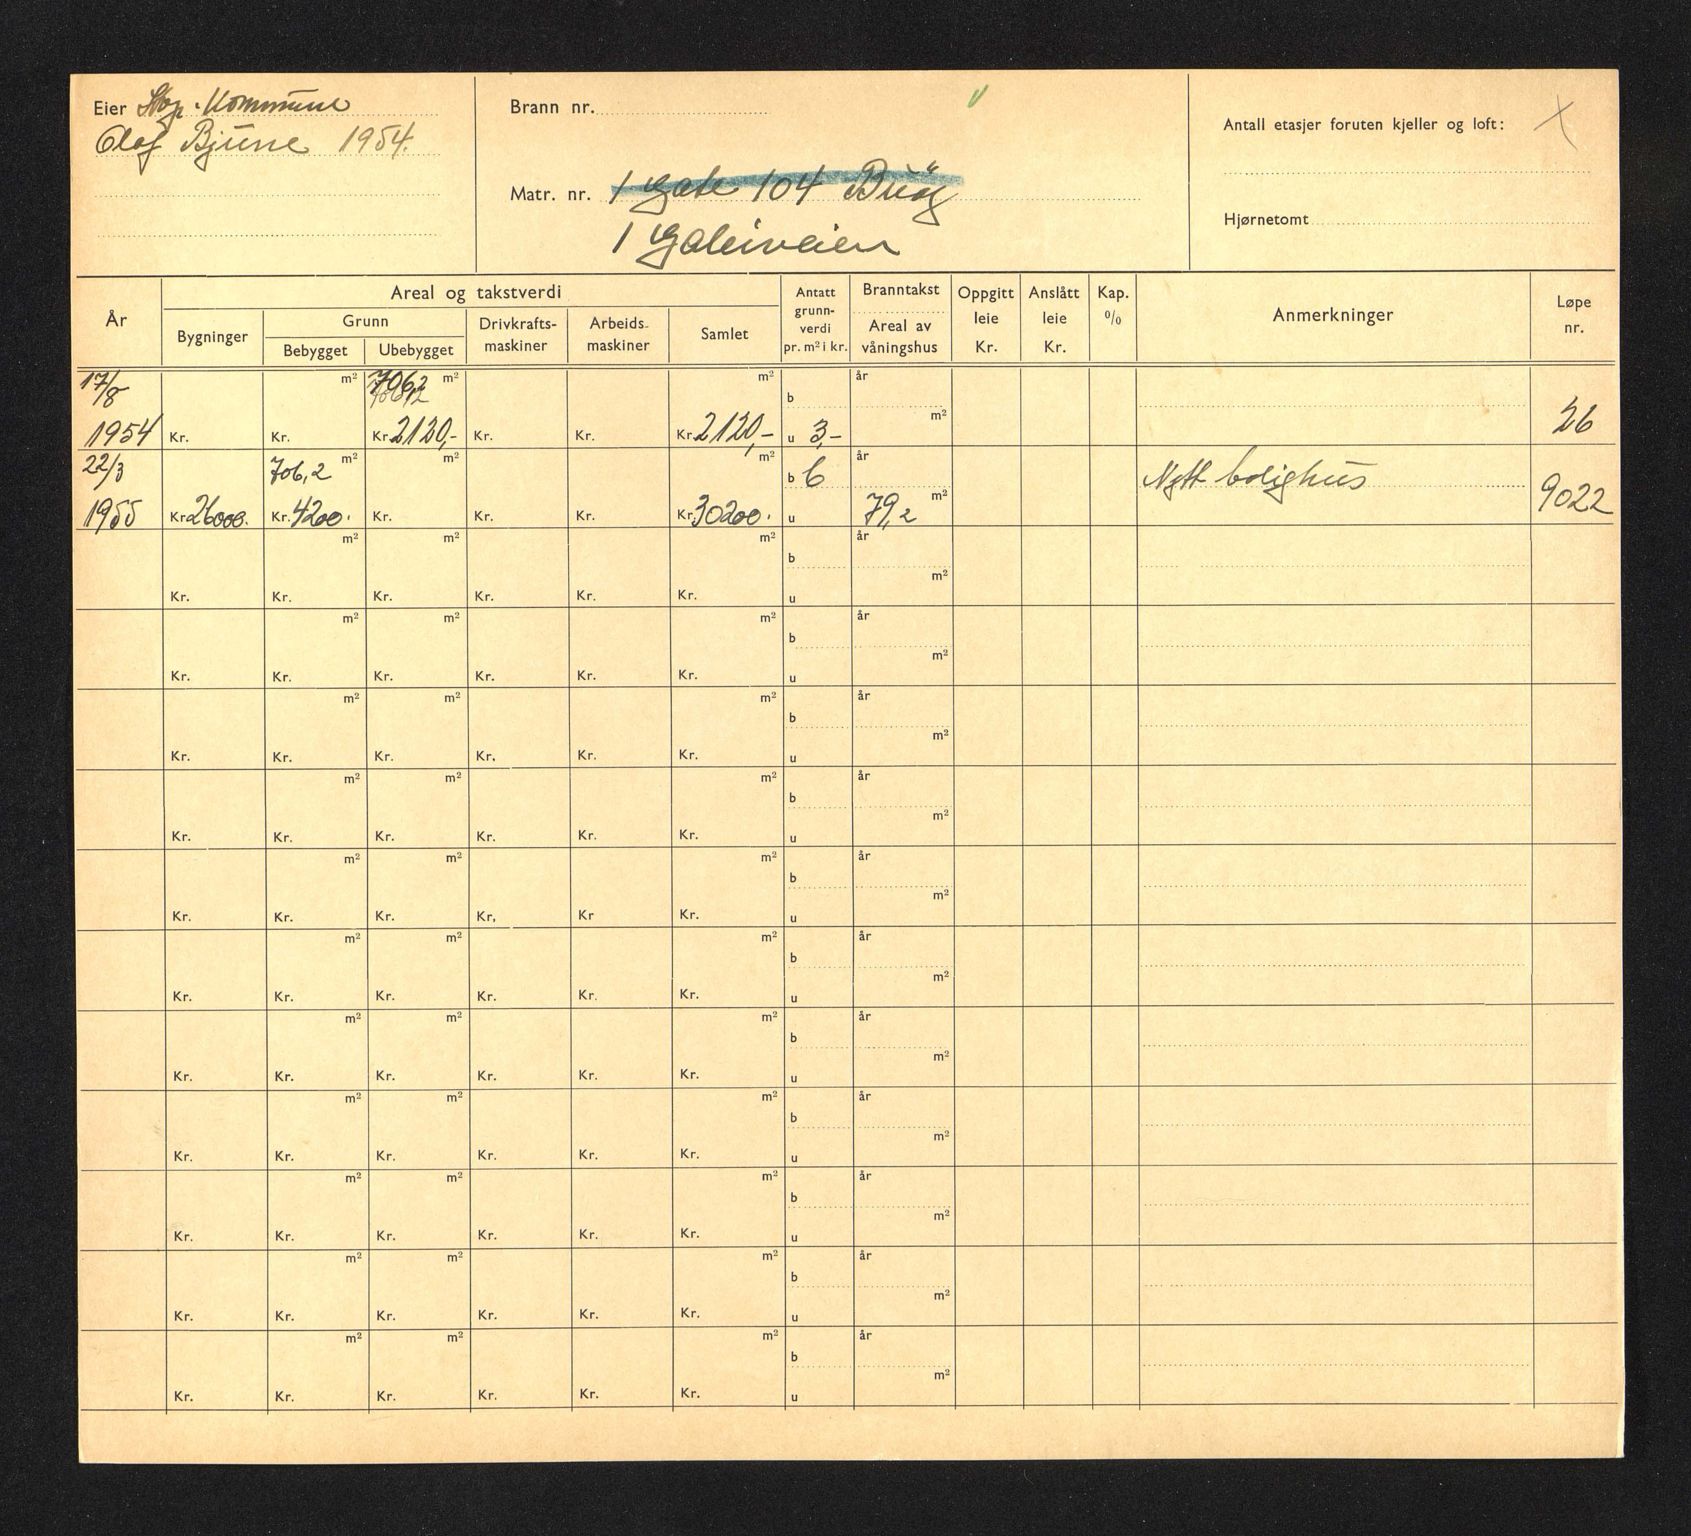 Eier Stvgr. Kommune
Olaf Bjune 1954.
Brann nr.
Matr. nr. 1 Gate 104 Buøy
1 Galeiveien
Antall etasjer foruten kjeller og loft:
Hjørnetomt
År
Areal og takstverdi
Bygninger
Grunn
Bebygget
Ubebygget
Drivkrafts-
maskiner
Arbeids-
maskiner
Samlet
Antatt
grunn-
verdi
pr. m² i kr.
Branntakst
Areal av
våningshus
Oppgitt
leie
Kr.
Anslått
leie
Kr.
Kap.
%
Anmerkninger
Løpe
nr.
17/8 m² 706,2 m² m² år
706,2
b
m²
1954 Kr. Kr. Kr. 2120,- Kr. Kr. Kr. 2120,- u 3,- 26
22/3 706,2 m² m² m² b 6 år Nytt bolighus
m²
1955 Kr. 26000. Kr. 4200. Kr. Kr. Kr. Kr. 30200. u 79,2 9022
m² m² m² år
b
m²
Kr. Kr. Kr. Kr. Kr. Kr. u
m² m² m² år
b
m²
Kr. Kr. Kr. Kr. Kr. Kr. u
m² m² m² år
b
m²
Kr. Kr. Kr. Kr. Kr. Kr. u
m² m² m² år
b
m²
Kr. Kr. Kr. Kr. Kr. Kr. u
m² m² m² år
b
m²
Kr. Kr. Kr. Kr, Kr Kr. u
m² m² m² år
b
m²
Kr. Kr. Kr. Kr. Kr. Kr. u
m² m² m² år
b
m²
Kr. Kr. Kr. Kr. Kr. Kr. u
m² m² m² år
b
m²
Kr. Kr. Kr. Kr. Kr. Kr. u
m² m² m² år
b
m²
Kr. Kr. Kr. Kr. Kr. Kr. u
m² m² m² år
b
m²
Kr. Kr. Kr. Kr. Kr. Kr. u
m² m² m² år
b
m²
Kr. Kr. Kr. Kr. Kr. Kr. u